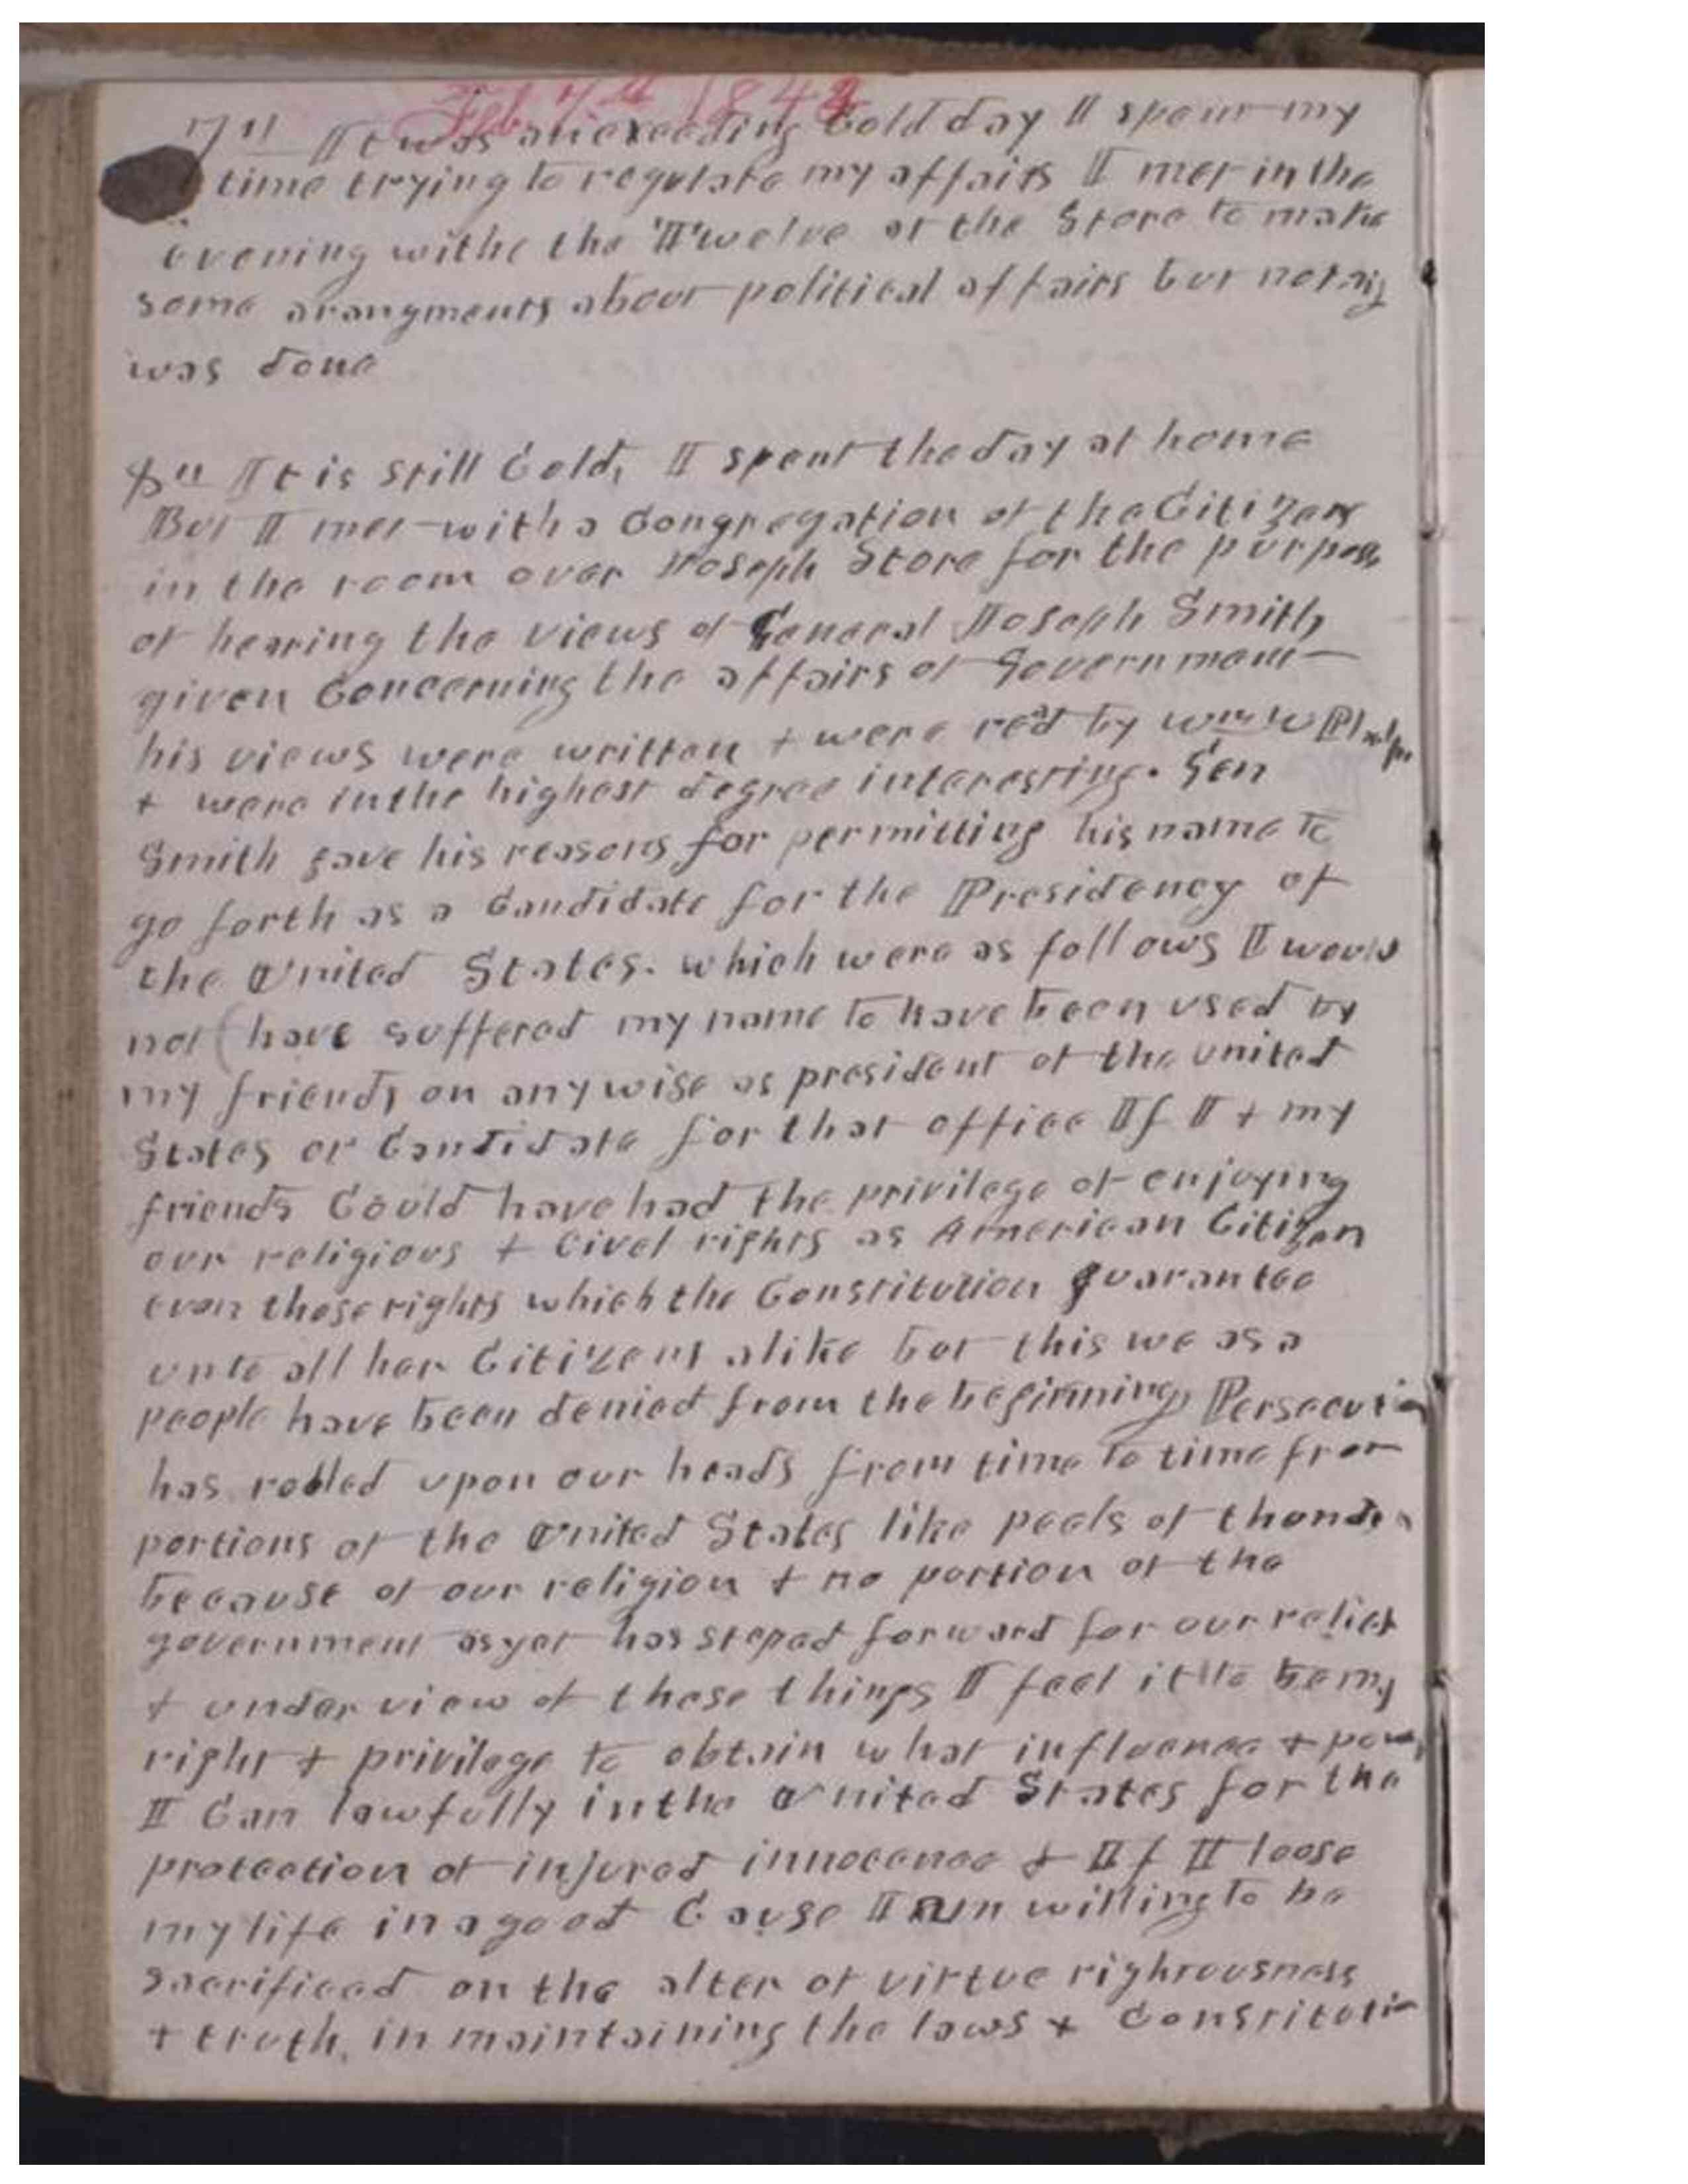 Feb 7th 1844
7th It was an exceeding Cold day I spent my
time trying to regulate my affairs I met in the
evening withe the Twelve at the Store to make
some arangments about political affairs but nothig
was done
8th It is still Cold, I spent the day at home
But I met with a Congregation of the Citizens
in the room over Joseph Store for the purpose
of hearing the views of General Joseph Smith,
given Concerning the affairs of Government
his views were written + were read by Wm W Phelps
+ were in the highest degree interesting. Gen
Smith gave his reasons for permitting his name to
go forth as a Candidate for the Presidency of
the United States. which were as follows I would
not (have suffered my name to have been used by
my friends on any wise as president of the United
States or Candidate for that office If I + my
friends Could have had the privilege of enjoying
our religious + Civel rights as American Citizen
even those rights which the Constitution guarantee
unto all her Citizens alike but this we as a
people have been denied from the beginning Persecution
has rolled upon our heads from time to time from
portions of the United States like peels of thunder
because of our religion + no portion of the
government as yet has steped forward for our relief
+ under view of these things I feel it to be my
right + privilege to obtain what influence + power
I Can lawfully in the United States for the
protection of injured innocence + If I loose
my life in a good Cause I am willing to be
sacrificed on the alter of virtue righteousness
+ truth, in maintaining the laws + Constitution